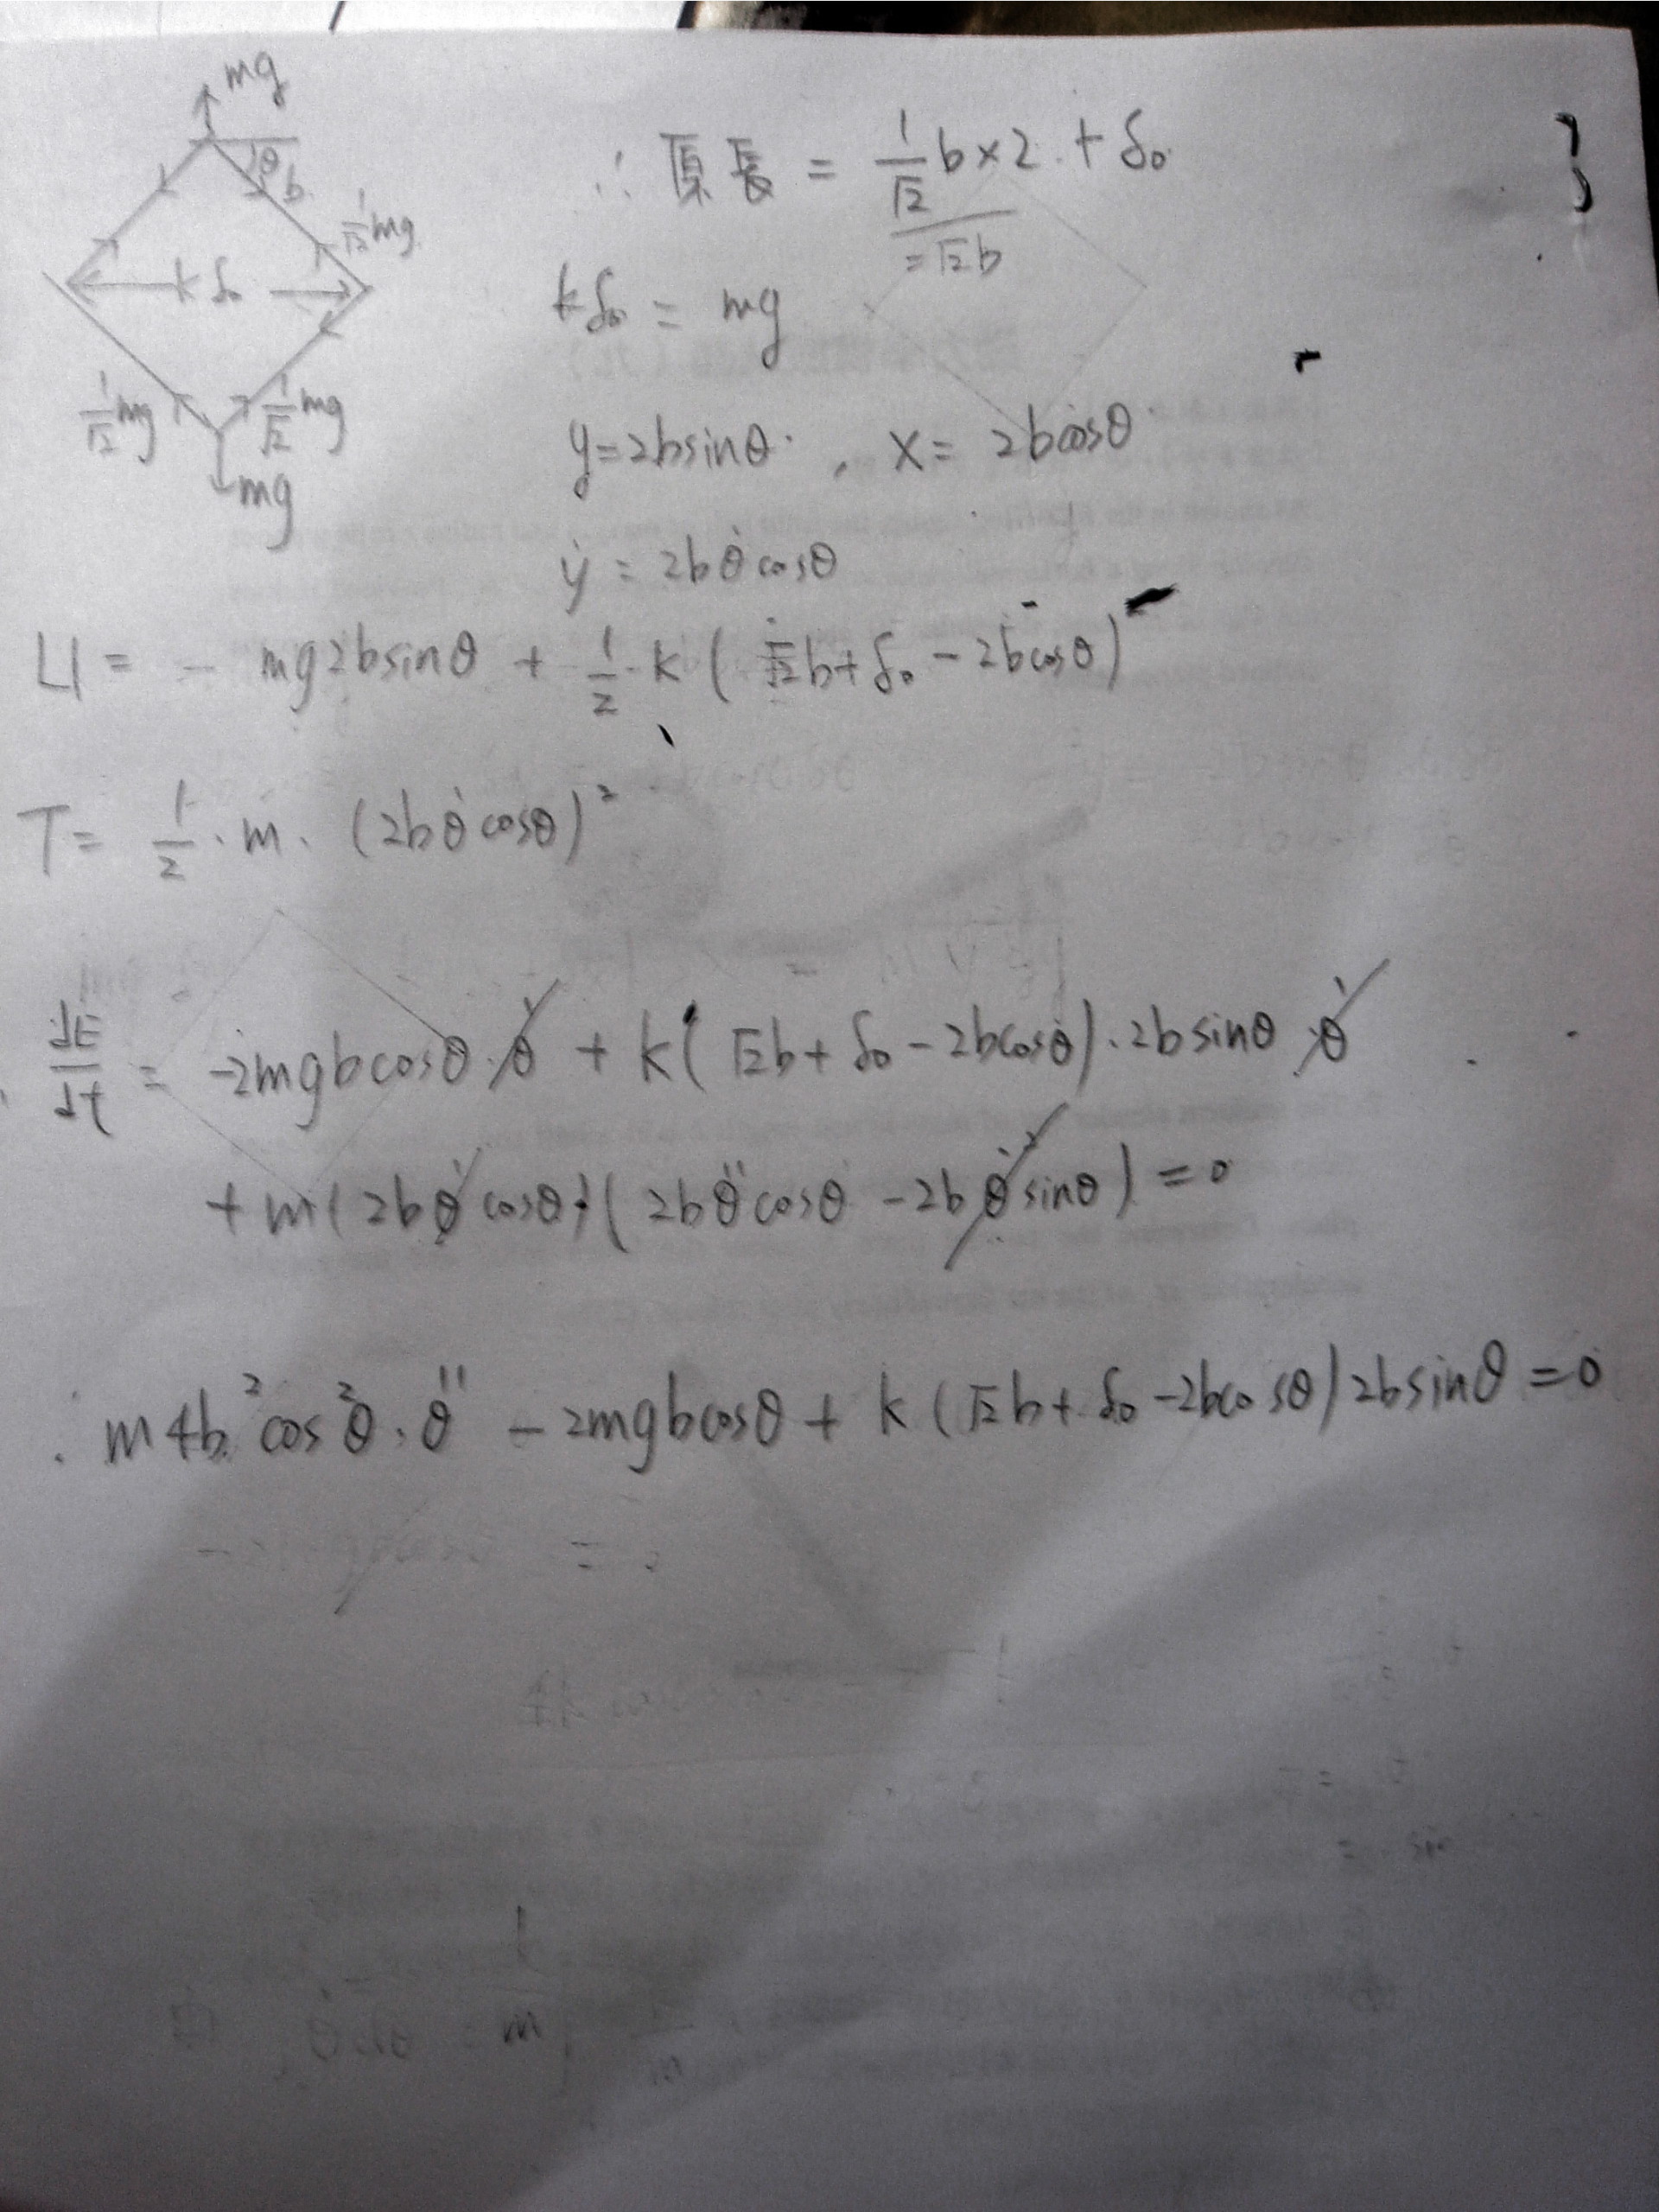 mg
θ
b
1/√2 mg
k δ₀
1/√2 mg
1/√2 mg
mg
∴ 原長 = 1/√2 b×2 + δ₀
= √2 b
kδ₀ = mg
y=2bsinθ , x= 2bcosθ
ẏ = 2bθ̇cosθ
U = - mg2bsinθ + 1/2·k(√2b+δ₀-2bcosθ)²
T= 1/2·m·(2bθ̇cosθ)²
dE/dt = -2mgbcosθ·θ̇ + k(√2b+δ₀-2bcosθ)·2bsinθ·θ̇
+ m(2bθ̇cosθ)(2bθ̈cosθ -2bθ̇²sinθ) = 0
∴ m4b²cos²θ·θ̈ - 2mgbcosθ + k(√2b+δ₀-2bcosθ)2bsinθ=0